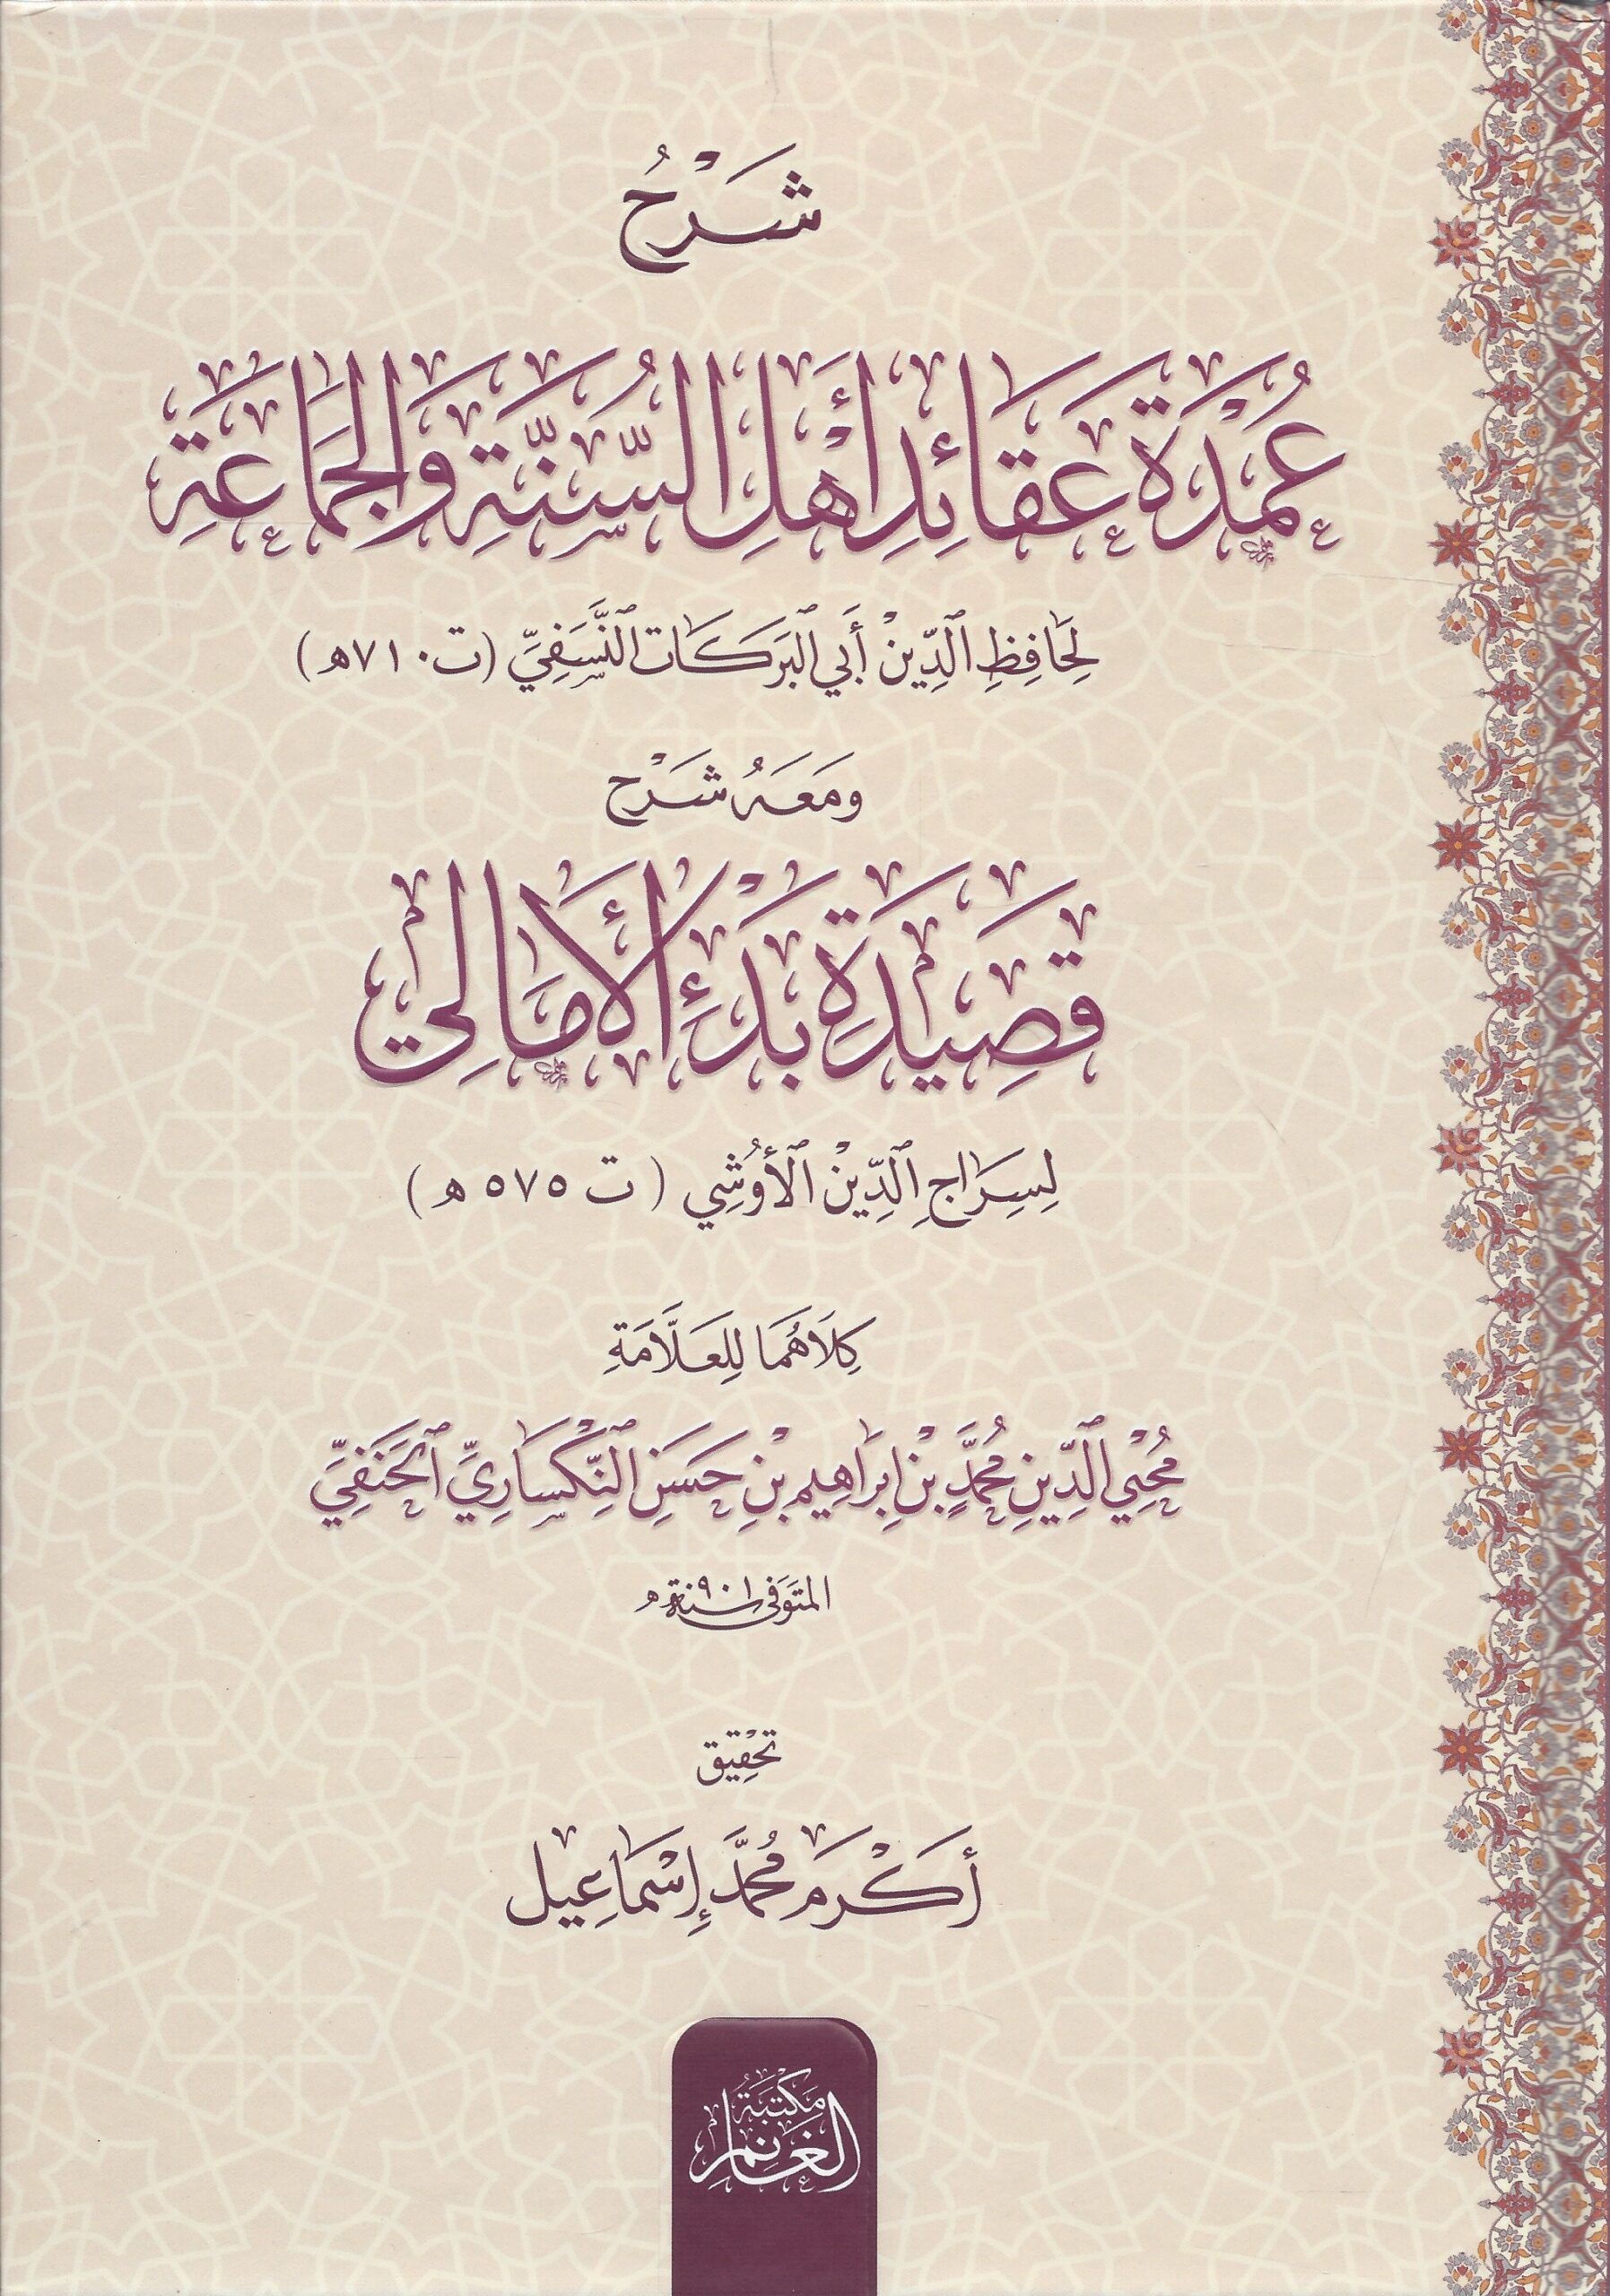 شَرْحُ
عُمْدَةِ عَقَائِدِ أَهْلِ السُّنَّةِ وَالجَمَاعَةِ
لِحَافِظِ الدِّينْ أَبِي البَرَكَات النَّسَفِيِّ (ت ٧١٠هـ)
وَمَعَهُ شَرْح
قَصِيدَةِ بَدْءِ الأَمَالِي
لِسِرَاجِ الدِّينْ الأُوْشِي (ت ٥٧٥ هـ)
كِلَاهُمَا لِلعَلَّامَةِ
مُحْيِي الدِّينِ مُحَمَّدِ بْنِ إِبرَاهِيم بْنِ حَسَنِ النِّكْسَارِيِّ الحَنَفِيِّ
المتَوَفى سنة ٩٠١هـ
تحْقِيق
أَكْرَم مُحَمَّد إِسْمَاعِيل
مَكْتَبَةُ
الغَانِم